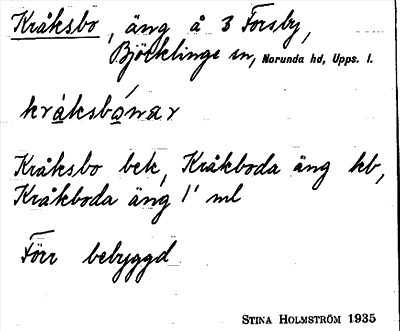 Kråksbo, äng å 3 Forsby,
Björklinge sn, Norunda hd, Upps. l.
kråksbónar
Kråksbo bek, Kråkboda äng kb,
Kråkboda äng 1' ml
Förr bebyggd
STINA HOLMSTRÖM 1935